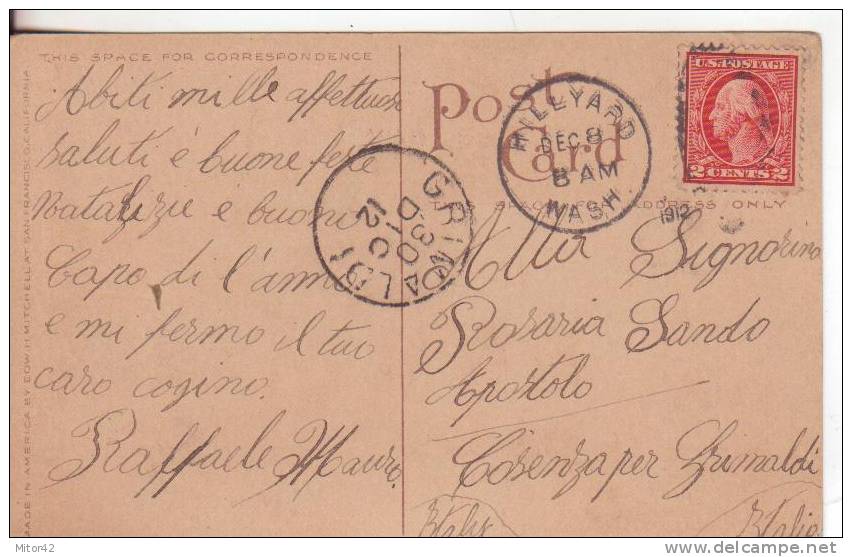 THIS SPACE FOR CORRESPONDENCE
Abiti mille affettuosi
saluti è buone feste
Natalizie e buoni
Capo di l'anno
e mi fermo il tuo
caro cogino.
Raffaele Mauro.
MADE IN AMERICA BY EDW. H. MITCHELL AT SAN FRANCISCO, CALIFORNIA
Post
Card
THIS SPACE FOR ADDRESS ONLY
HILLYARD
DEC 8
8 AM
WASH.
1912
U.S. POSTAGE
2 CENTS 2
GRIMALDI
30
DIC
12
Alla Signorina
Rosaria Sando
Apostolo
Cosenza per Grimaldi
Italy
Italia
Mitor42
delcampe.net